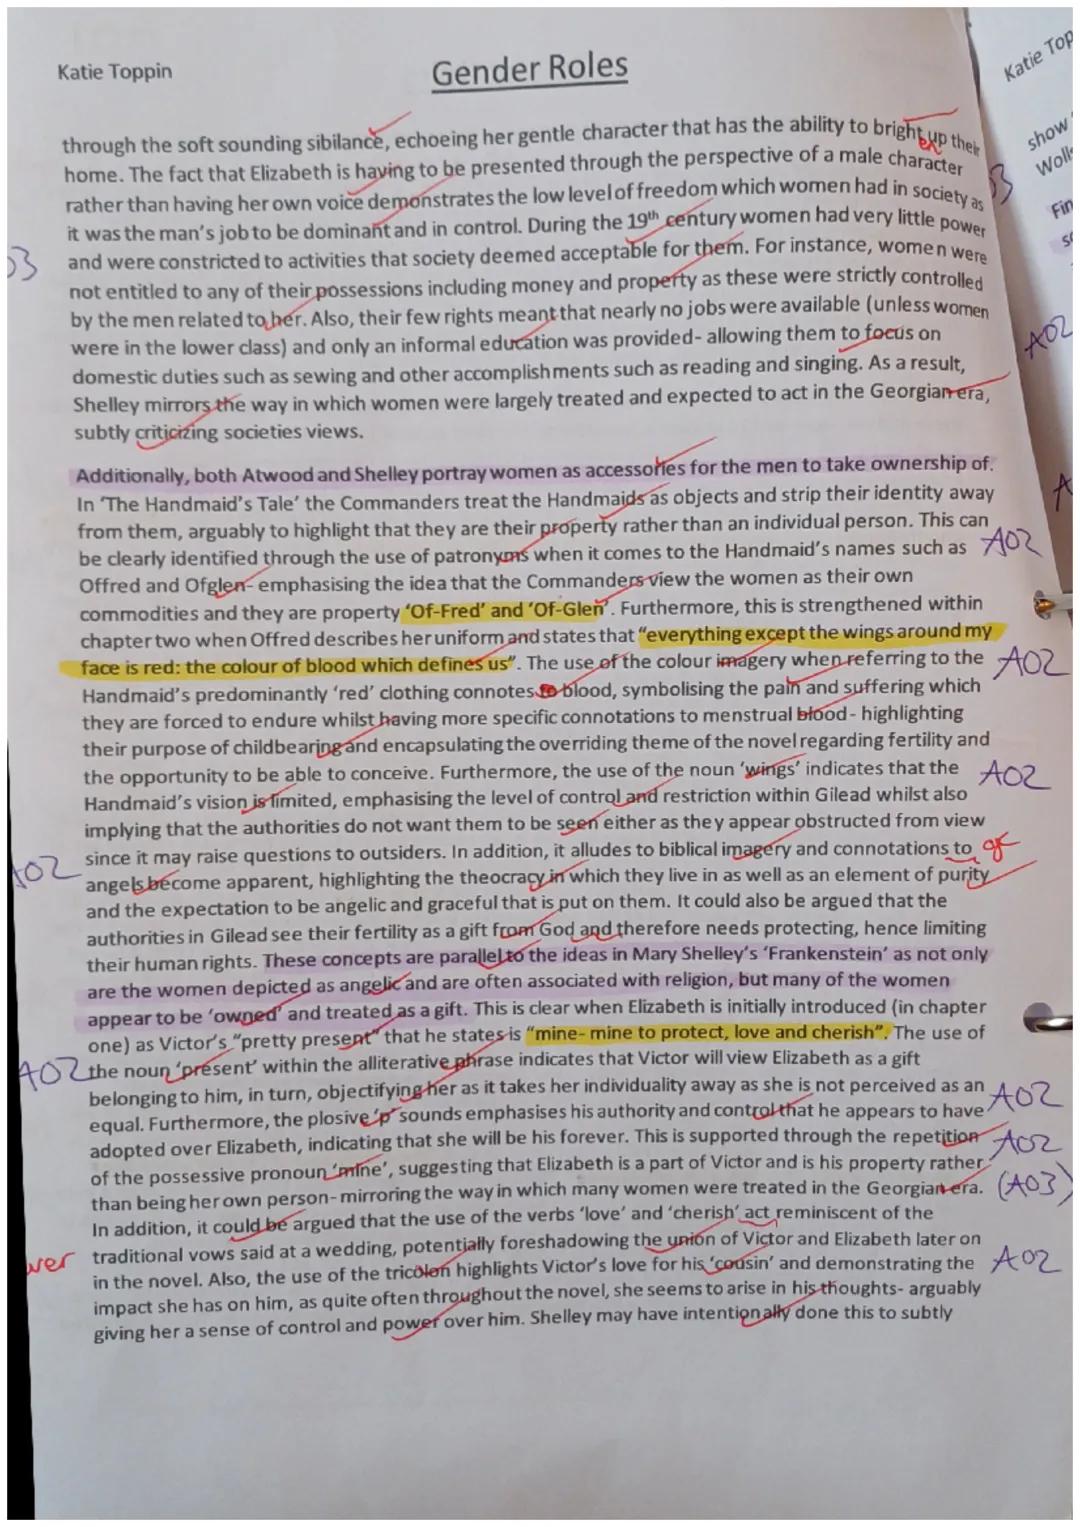 Katie Toppin
Gender Roles
through the soft sounding sibilance, echoeing her gentle character that has the ability to bright up their
en
home. The fact that Elizabeth is having to be presented through the perspective of a male character
rather than having her own voice demonstrates the low level of freedom which women had in society as
it was the man's job to be dominant and in control. During the 19th century women had very little power
and were constricted to activities that society deemed acceptable for them. For instance, women were
not entitled to any of their possessions including money and property as these were strictly controlled
by the men related to her. Also, their few rights meant that nearly no jobs were available (unless women
were in the lower class) and only an informal education was provided- allowing them to focus on
domestic duties such as sewing and other accomplishments such as reading and singing. As a result,
Shelley mirrors the way in which women were largely treated and expected to act in the Georgian era,
subtly criticizing societies views.
Additionally, both Atwood and Shelley portray women as accessories for the men to take ownership of.
In 'The Handmaid's Tale' the Commanders treat the Handmaids as objects and strip their identity away
from them, arguably to highlight that they are their property rather than an individual person. This can
be clearly identified through the use of patronyms when it comes to the Handmaid's names such as AO2
Offred and Ofglen- emphasising the idea that the Commanders view the women as their own
commodities and they are property 'Of-Fred' and 'Of-Glen'. Furthermore, this is strengthened within
chapter two when Offred describes her uniform and states that "everything except the wings around my
face is red: the colour of blood which defines us". The use of the colour imagery when referring to the AO2
Handmaid's predominantly 'red' clothing connotes to blood, symbolising the pain and suffering which
they are forced to endure whilst having more specific connotations to menstrual blood- highlighting
their purpose of childbearing and encapsulating the overriding theme of the novel regarding fertility and
the opportunity to be able to conceive. Furthermore, the use of the noun 'wings' indicates that the AO2
Handmaid's vision is limited, emphasising the level of control and restriction within Gilead whilst also
implying that the authorities do not want them to be seen either as they appear obstructed from view
AO2 since it may raise questions to outsiders. In addition, it alludes to biblical imagery and connotations to
angels become apparent, highlighting the theocracy in which they live in as well as an element of purity
and the expectation to be angelic and graceful that is put on them. It could also be argued that the
authorities in Gilead see their fertility as a gift from God and therefore needs protecting, hence limiting
their human rights. These concepts are parallel to the ideas in Mary Shelley's 'Frankenstein' as not only
are the women depicted as angelic and are often associated with religion, but many of the women
appear to be 'owned' and treated as a gift. This is clear when Elizabeth is initially introduced (in chapter
one) as Victor's "pretty present" that he states is "mine- mine to protect, love and cherish". The use of
AO2 the noun 'present' within the alliterative phrase indicates that Victor will view Elizabeth as a gift
belonging to him, in turn, objectifying her as it takes her individuality away as she is not perceived as an AO2
equal. Furthermore, the plosive 'p' sounds emphasises his authority and control that he appears to have
adopted over Elizabeth, indicating that she will be his forever. This is supported through the repetition AO2
of the possessive pronoun 'mine', suggesting that Elizabeth is a part of Victor and is his property rather
than being her own person- mirroring the way in which many women were treated in the Georgian era. (AO3)
In addition, it could be argued that the use of the verbs 'love' and 'cherish' act reminiscent of the
traditional vows said at a wedding, potentially foreshadowing the union of Victor and Elizabeth later on
in the novel. Also, the use of the tricolon highlights Victor's love for his 'cousin' and demonstrating the AO2
impact she has on him, as quite often throughout the novel, she seems to arise in his thoughts- arguably
giving her a sense of control and power over him. Shelley may have intentionally done this to subtly
Katie Top
show
Wolls
Fin
AO2